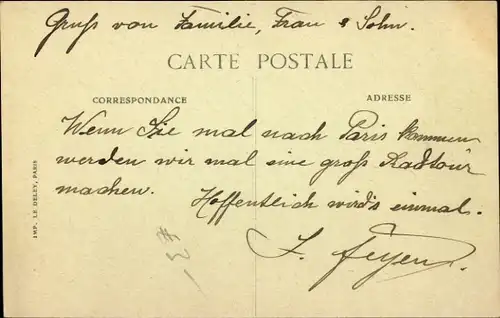 Gruß von Familie, Frau & Sohn.
CARTE POSTALE
CORRESPONDANCE
ADRESSE
Wenn Sie mal nach Paris kommen
werden wir mal eine groß Radtour
machen.
Hoffentlich wird's einmal.
J. Feyen.
IMP. LE DELEY, PARIS